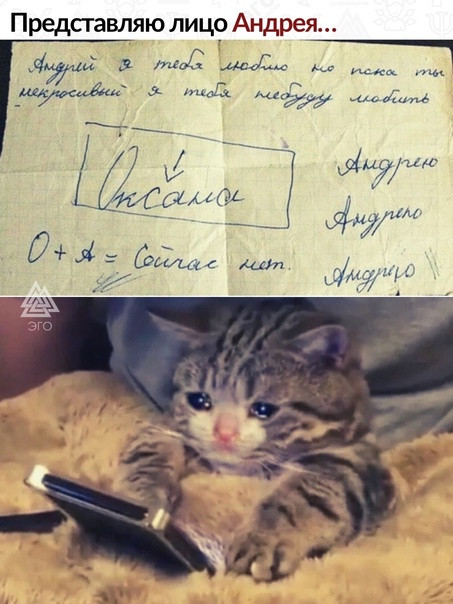 Представляю лицо Андрея...
Андрей я тебя люблю но пока ты
некрасивый я тебя небуду любить
Оксана
Андрею
Андрею
О + А = Сейчас нет.
Андрею
ЭГО